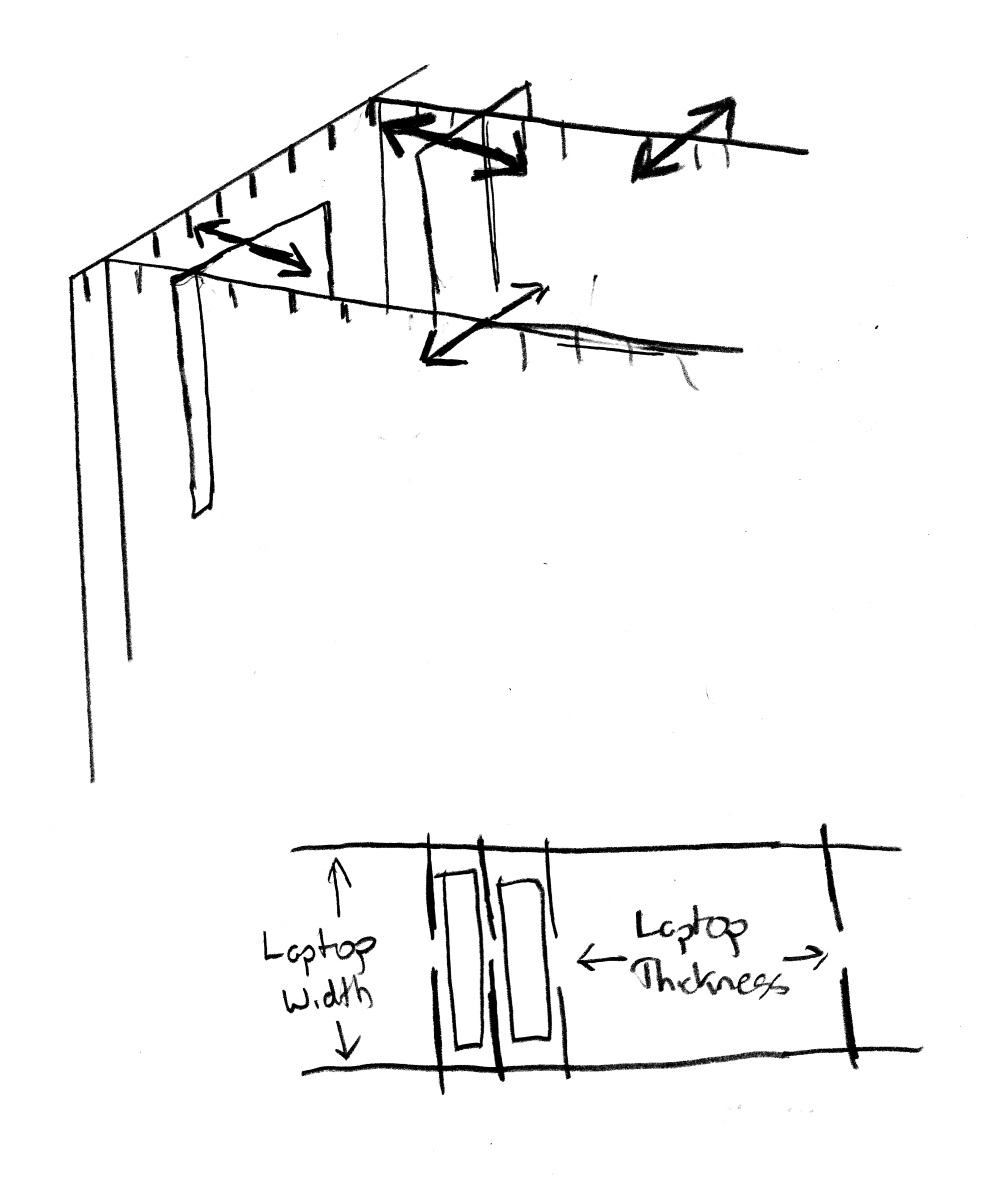 Laptop
Width
Laptop
Thickness